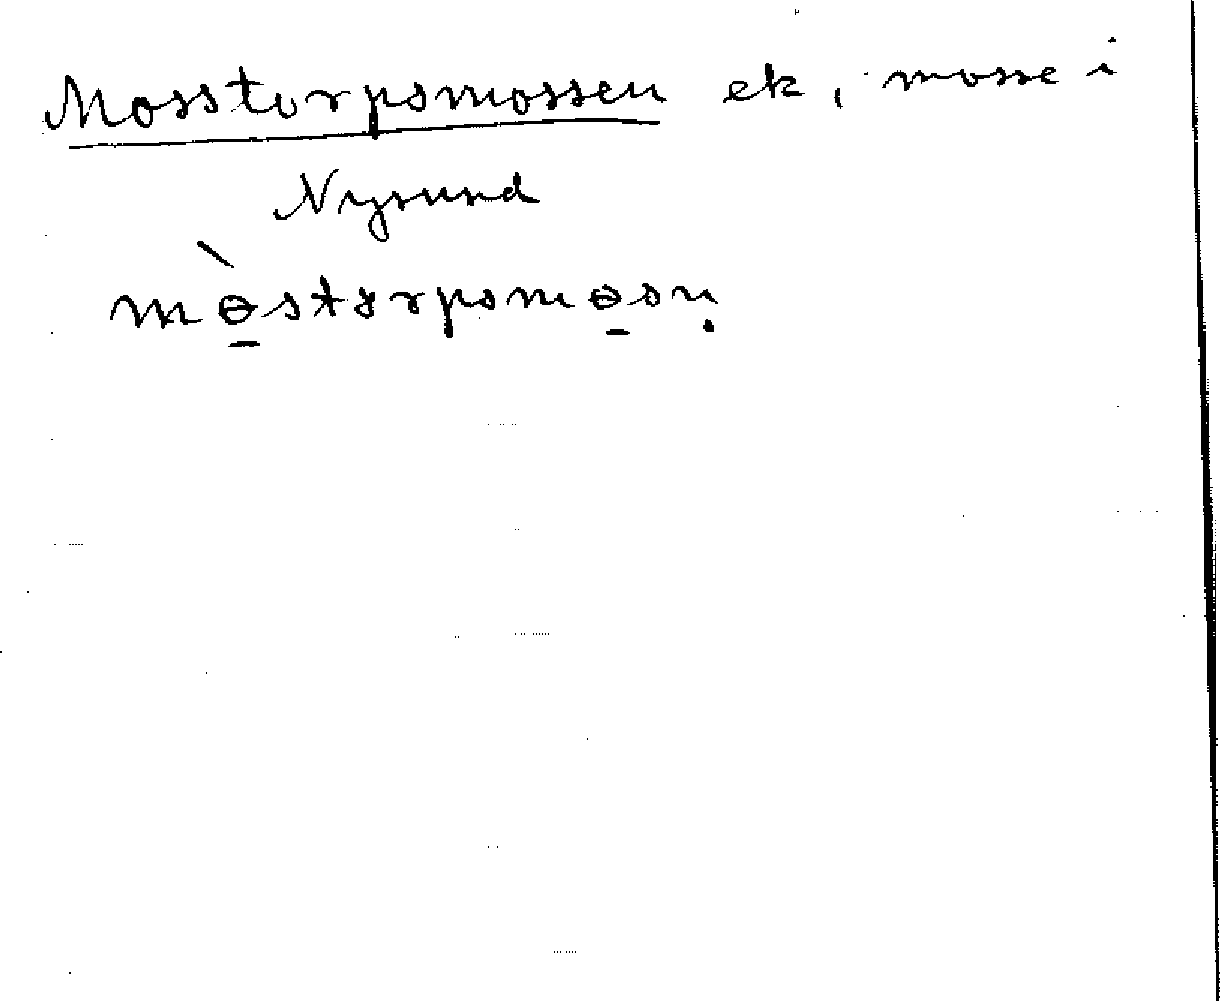 Mosstorpsmossen ek, mosse i
Nysund
mɵ̠̀stɤrpsmɵ̠sṇ